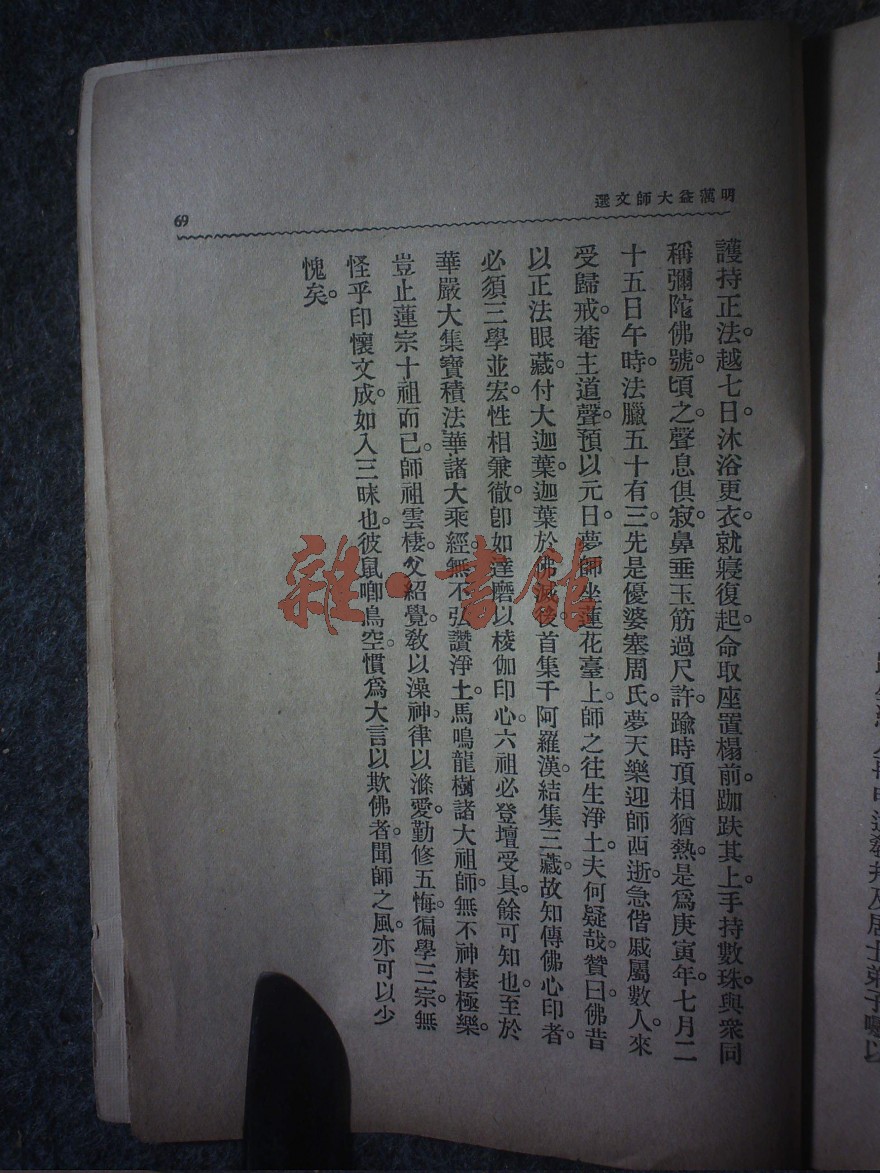 明蕅益大師文選
69
護持正法。越七日。沐浴更衣。就寢復起。命取座置榻前。跏趺其上。手持數珠。與衆同
稱彌陀佛號。頃之。聲息俱寂。鼻垂玉筋過尺許。踰時頂相猶熱。是爲庚寅年七月二
十五日午時。法臘五十有三。先是優婆塞周氏。夢天樂迎師西逝。急偕戚屬數人。來
受歸戒。菴主道聲。預以元日。夢師坐蓮花臺上。師之往生淨土。夫何疑哉。贊曰。佛昔
以正法眼藏。付大迦葉。迦葉於佛滅後。首集千阿羅漢。結集三藏。故知傳佛心印者。
必須三學並宏。性相兼徹。卽如達磨以棱伽印心。六祖必登壇受具。餘可知也。至於
華嚴大集寶積法華諸大乘經。無不弘讚淨土。馬鳴龍樹諸大祖師。無不神棲極樂。
豈止蓮宗十祖而已。師祖雲棲。父紹覺。敎以澡神。律以滌愛。勤修五悔。徧學三宗。無
怪乎印懷文成。如入三昧也。彼鼠喞鳥空。慣爲大言以欺佛者。聞師之風。亦可以少
愧矣。
雜·書館